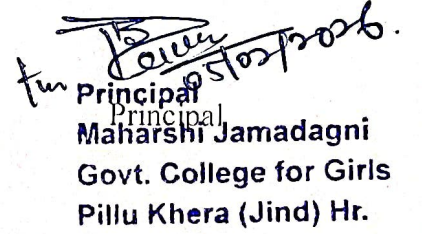 05/02/2026.
Principal
Principal
Maharshi Jamadagni
Govt. College for Girls
Pillu Khera (Jind) Hr.